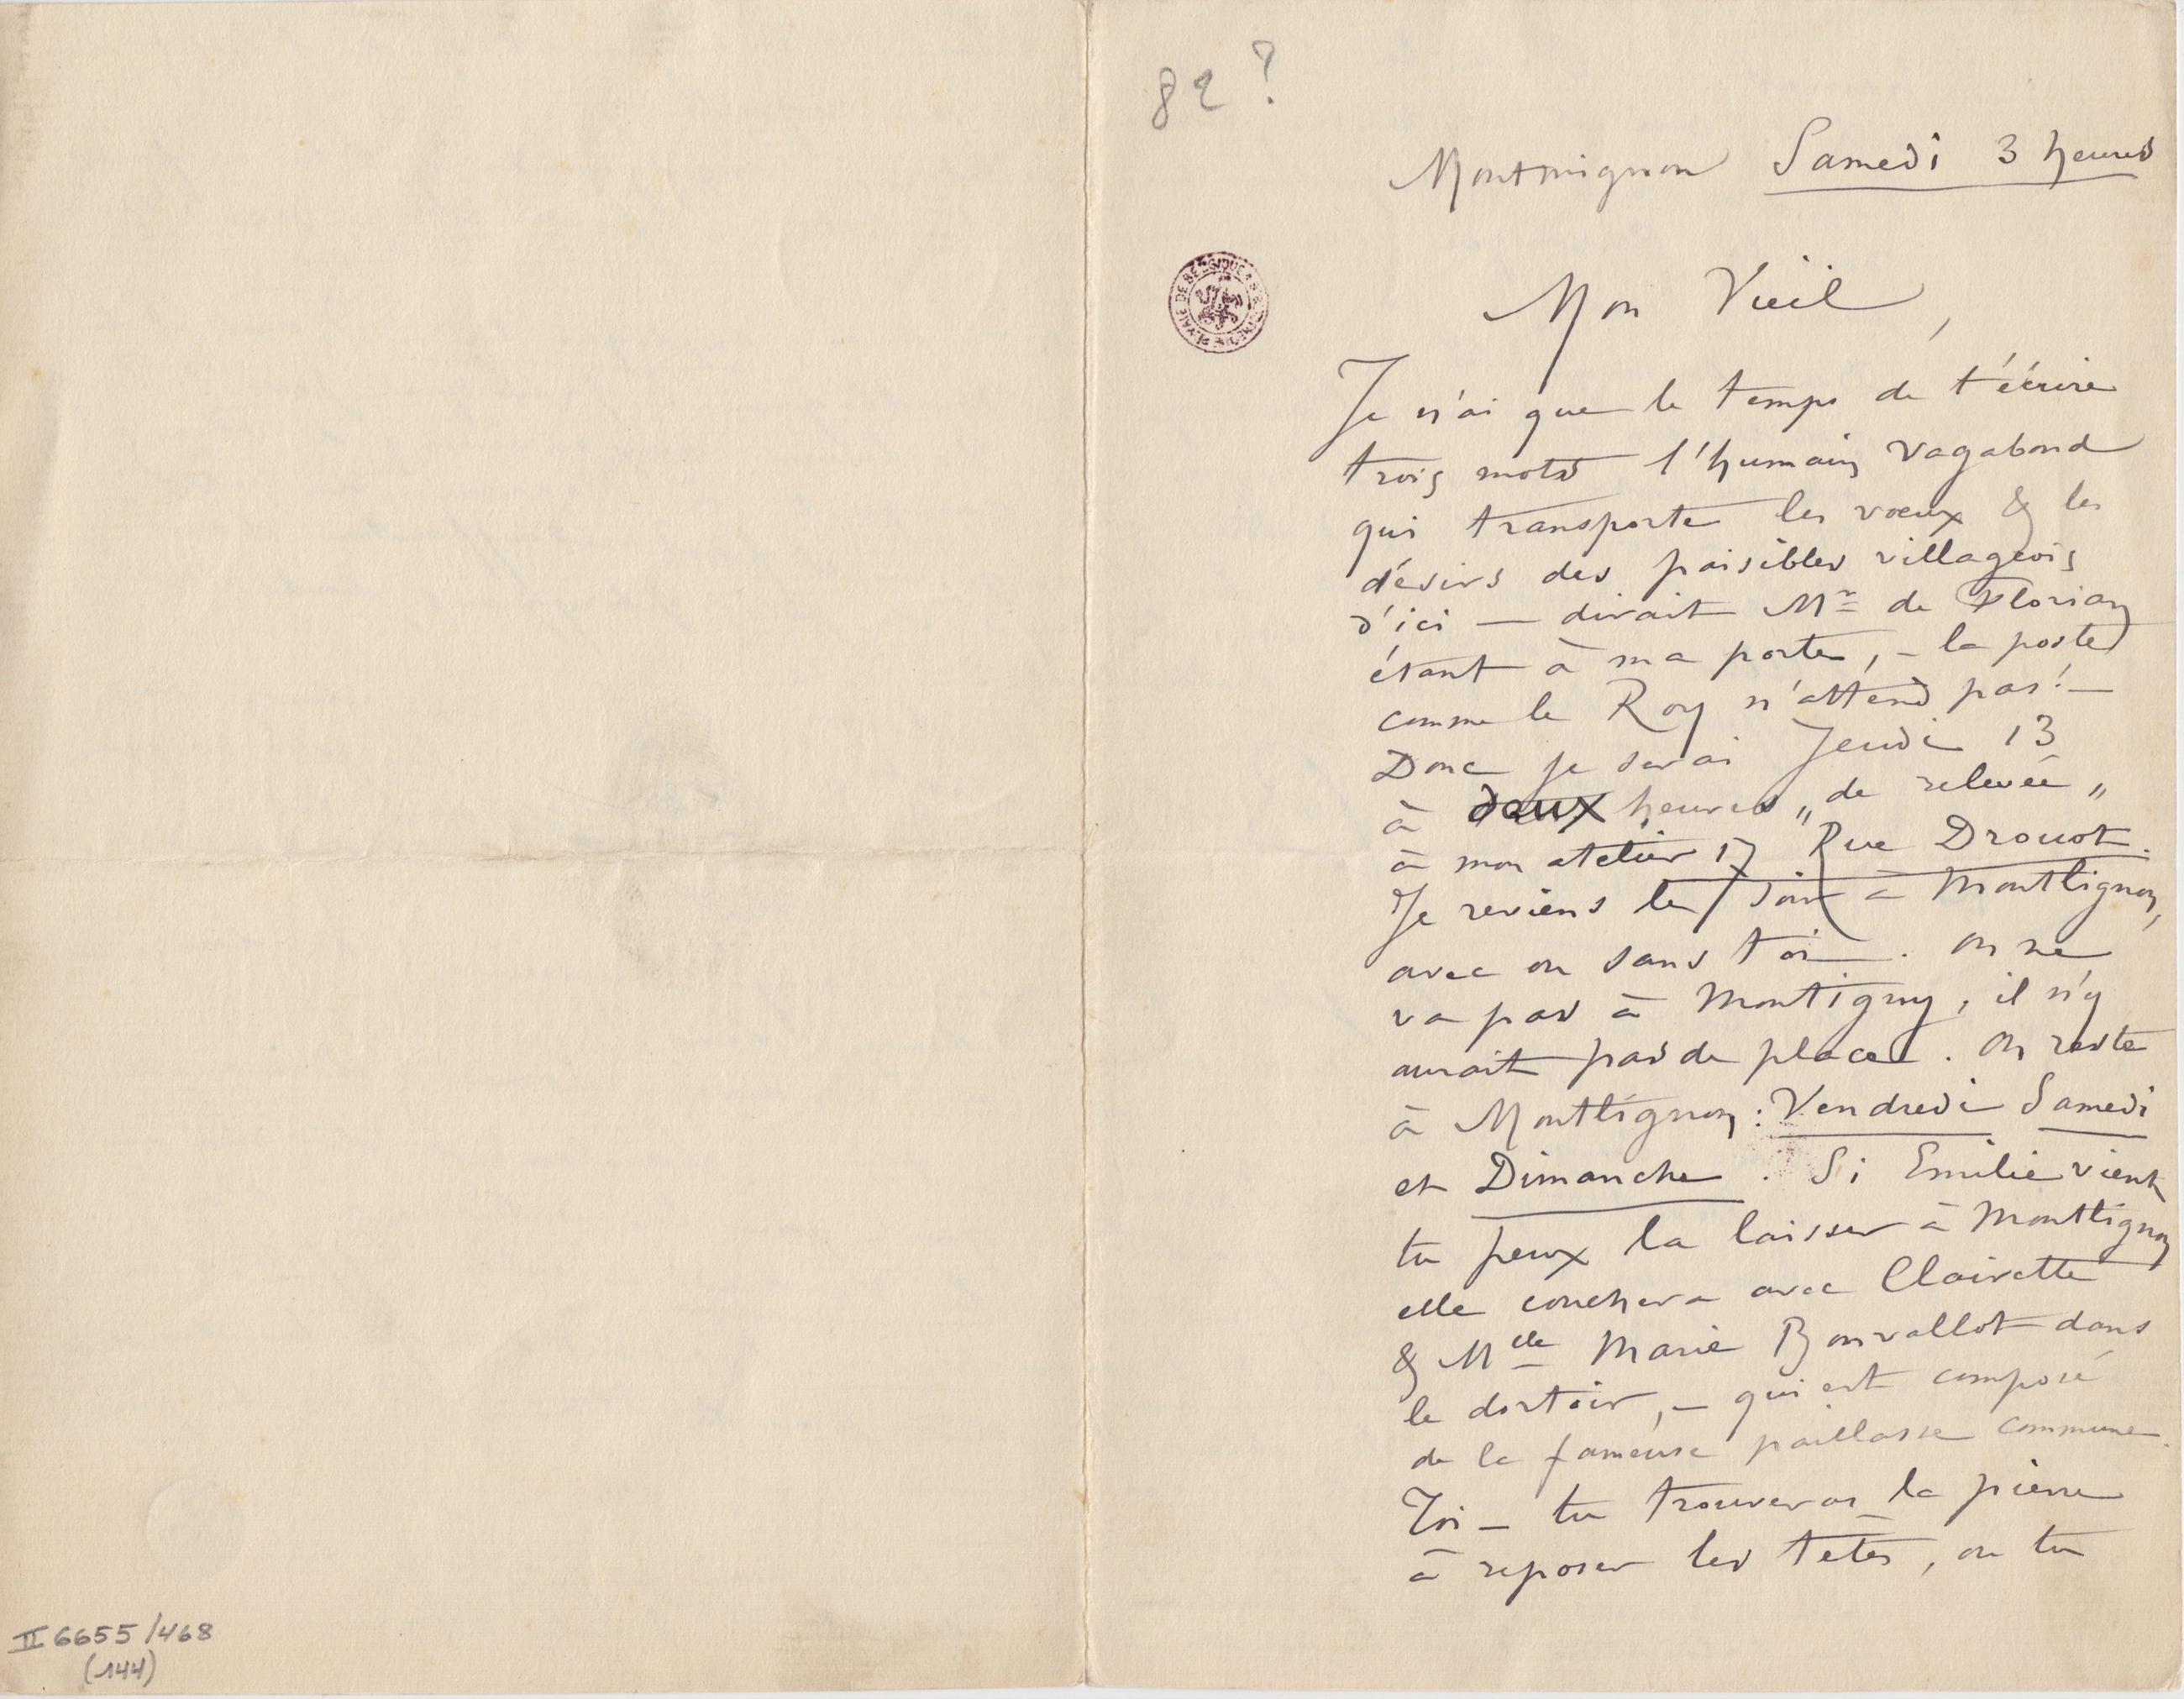 82?
Montmignon Samedi 3 heures
Mon Vieil,
Je n'ai que le temps de t'écrire
trois mots l'humain vagabond
qui transporte les vœux & les
désirs des paisibles villageois
d'ici — dirait Mr de Florian
étant à ma porte, – la poste
comme le Roy n'attend pas! —
Donc je serai Jeudi 13
à deux heures „de relevée„
à mon atelier 17 Rue Drouot.
Je reviens le soir à Montlignon,
avec ou sans toi. On ne
va pas à Montigny, il n'y
aurait pas de place. On reste
à Montlignon: Vendredi Samedi
et Dimanche. Si Emilie vient
tu peux la laisser à Montlignon
elle couchera avec Clairette
& Melle Marie Bonvallot dans
le dortoir, – qui est composé
de la fameuse paillasse commune.
Toi – tu trouveras la pierre
à reposer les têtes, ou tu
II 6655/468
(144)